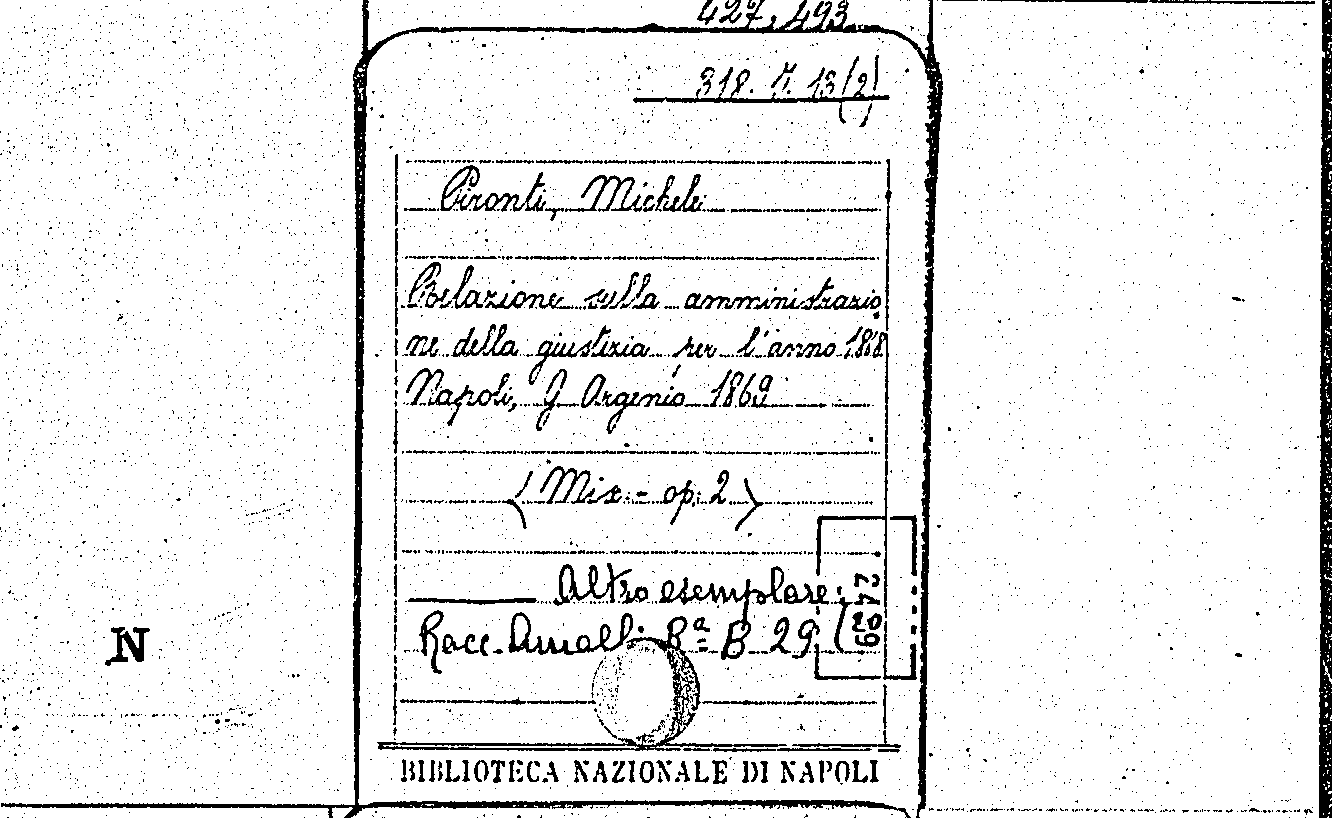 427, 493
318. 7. 13 (2)
Pironti, Michele
Relazione sulla amministrazio
ne della giustizia per l'anno 1868
Napoli, G Argenio 1869
(Mix. - op. 2)
Altro esemplare:
Racc. Amalfi Bª B 29 (
N
BIBLIOTECA NAZIONALE DI NAPOLI